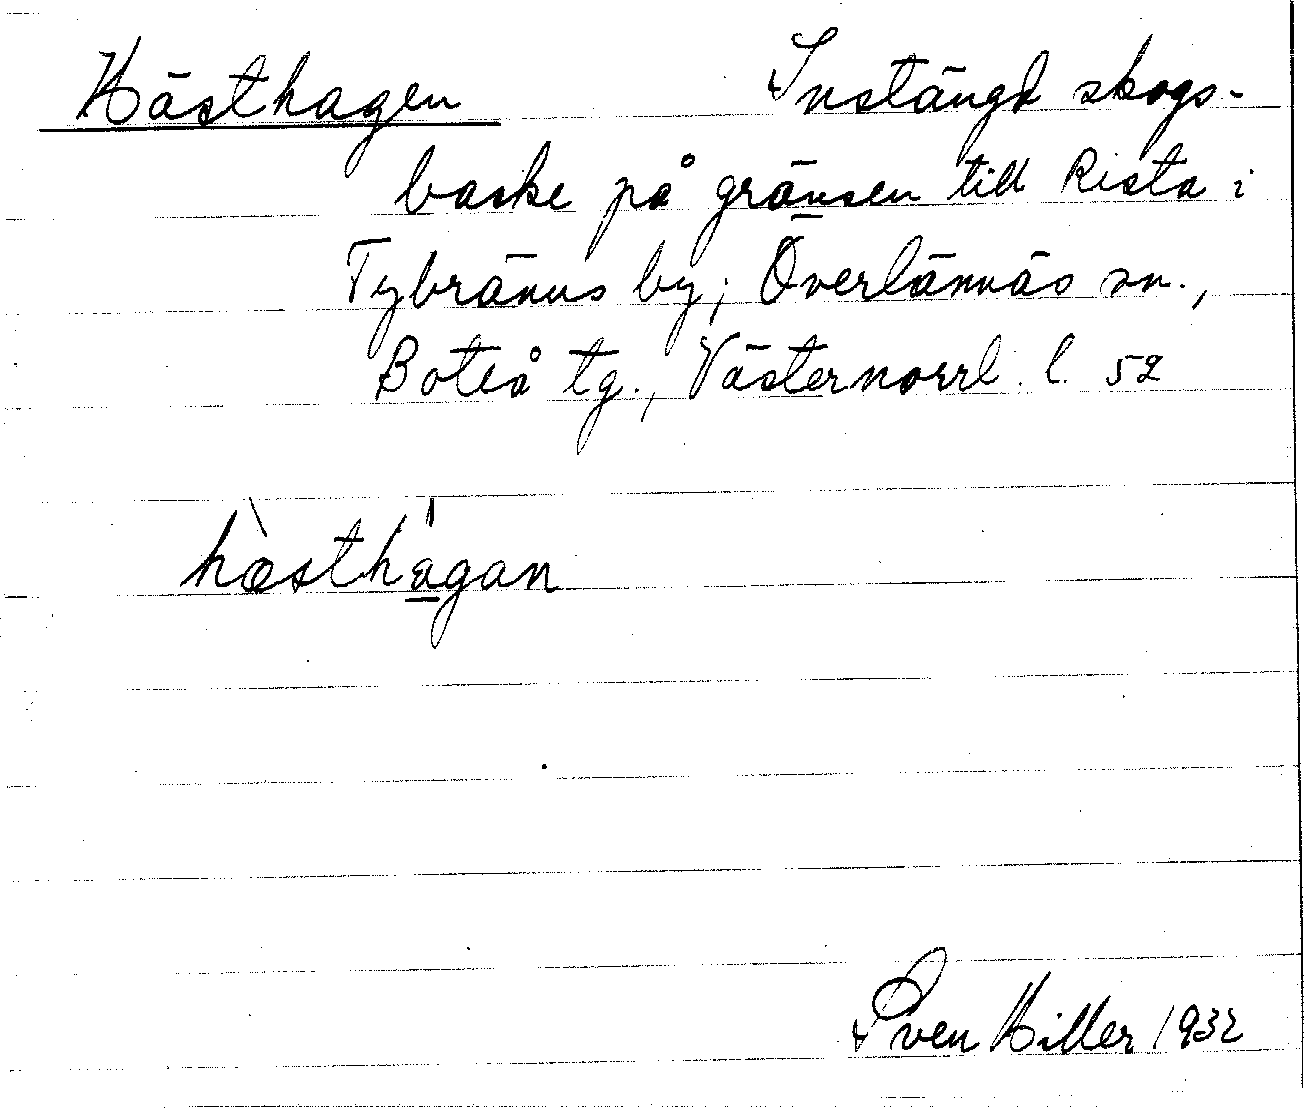 Hästhagen Instängd skogs-
backe på gränsen till Rista i
Tybränns by, Överlännäs sn.,
Boteå tg., Västernorrl. l. 52
hæ̀sthágan
Sven Hiller 1932